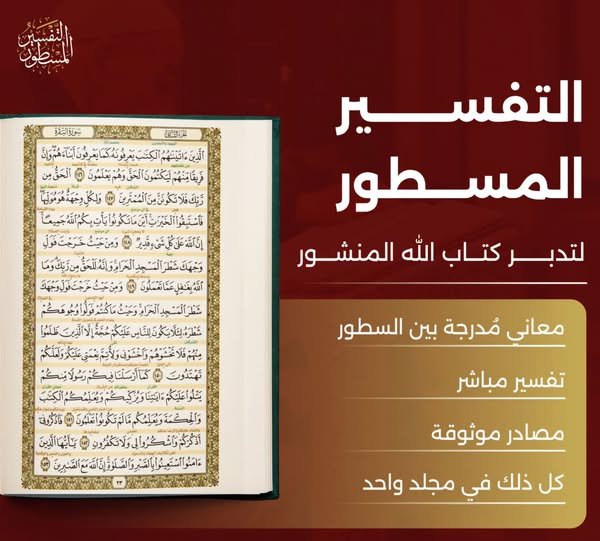 التفسير
المسطور
التفسير
المسطور
لتدبر كتاب الله المنشور
معاني مُدرجة بين السطور
تفسير مباشر
مصادر موثوقة
كل ذلك في مجلد واحد
الجزء الثاني
سورة البقرة
الَّذِينَ ءَاتَيْنَٰهُمُ الْكِتَٰبَ يَعْرِفُونَهُۥ كَمَا يَعْرِفُونَ أَبْنَآءَهُمْ وَإِنَّ
فَرِيقًا مِّنْهُمْ لَيَكْتُمُونَ الْحَقَّ وَهُمْ يَعْلَمُونَ ١٤٦ الْحَقُّ مِن
رَّبِّكَ فَلَا تَكُونَنَّ مِنَ الْمُمْتَرِينَ ١٤٧ وَلِكُلٍّ وِجْهَةٌ هُوَ مُوَلِّيهَا
فَاسْتَبِقُوا الْخَيْرَٰتِ أَيْنَ مَا تَكُونُوا يَأْتِ بِكُمُ اللَّهُ جَمِيعًا
إِنَّ اللَّهَ عَلَىٰ كُلِّ شَىْءٍ قَدِيرٌ ١٤٨ وَمِنْ حَيْثُ خَرَجْتَ فَوَلِّ
وَجْهَكَ شَطْرَ الْمَسْجِدِ الْحَرَامِ وَإِنَّهُۥ لَلْحَقُّ مِن رَّبِّكَ وَمَا
اللَّهُ بِغَٰفِلٍ عَمَّا تَعْمَلُونَ ١٤٩ وَمِنْ حَيْثُ خَرَجْتَ فَوَلِّ وَجْهَكَ
شَطْرَ الْمَسْجِدِ الْحَرَامِ وَحَيْثُ مَا كُنتُمْ فَوَلُّوا وُجُوهَكُمْ
شَطْرَهُۥ لِئَلَّا يَكُونَ لِلنَّاسِ عَلَيْكُمْ حُجَّةٌ إِلَّا الَّذِينَ ظَلَمُوا
مِنْهُمْ فَلَا تَخْشَوْهُمْ وَاخْشَوْنِى وَلِأُتِمَّ نِعْمَتِى عَلَيْكُمْ وَلَعَلَّكُمْ
تَهْتَدُونَ ١٥٠ كَمَآ أَرْسَلْنَا فِيكُمْ رَسُولًا مِّنكُمْ
يَتْلُوا عَلَيْكُمْ ءَايَٰتِنَا وَيُزَكِّيكُمْ وَيُعَلِّمُكُمُ الْكِتَٰبَ
وَالْحِكْمَةَ وَيُعَلِّمُكُم مَّا لَمْ تَكُونُوا تَعْلَمُونَ ١٥١ فَاذْكُرُونِىٓ
أَذْكُرْكُمْ وَاشْكُرُوا لِى وَلَا تَكْفُرُونِ ١٥٢ يَٰٓأَيُّهَا الَّذِينَ
ءَامَنُوا اسْتَعِينُوا بِالصَّبْرِ وَالصَّلَوٰةِ إِنَّ اللَّهَ مَعَ الصَّٰبِرِينَ ١٥٣
٢٣